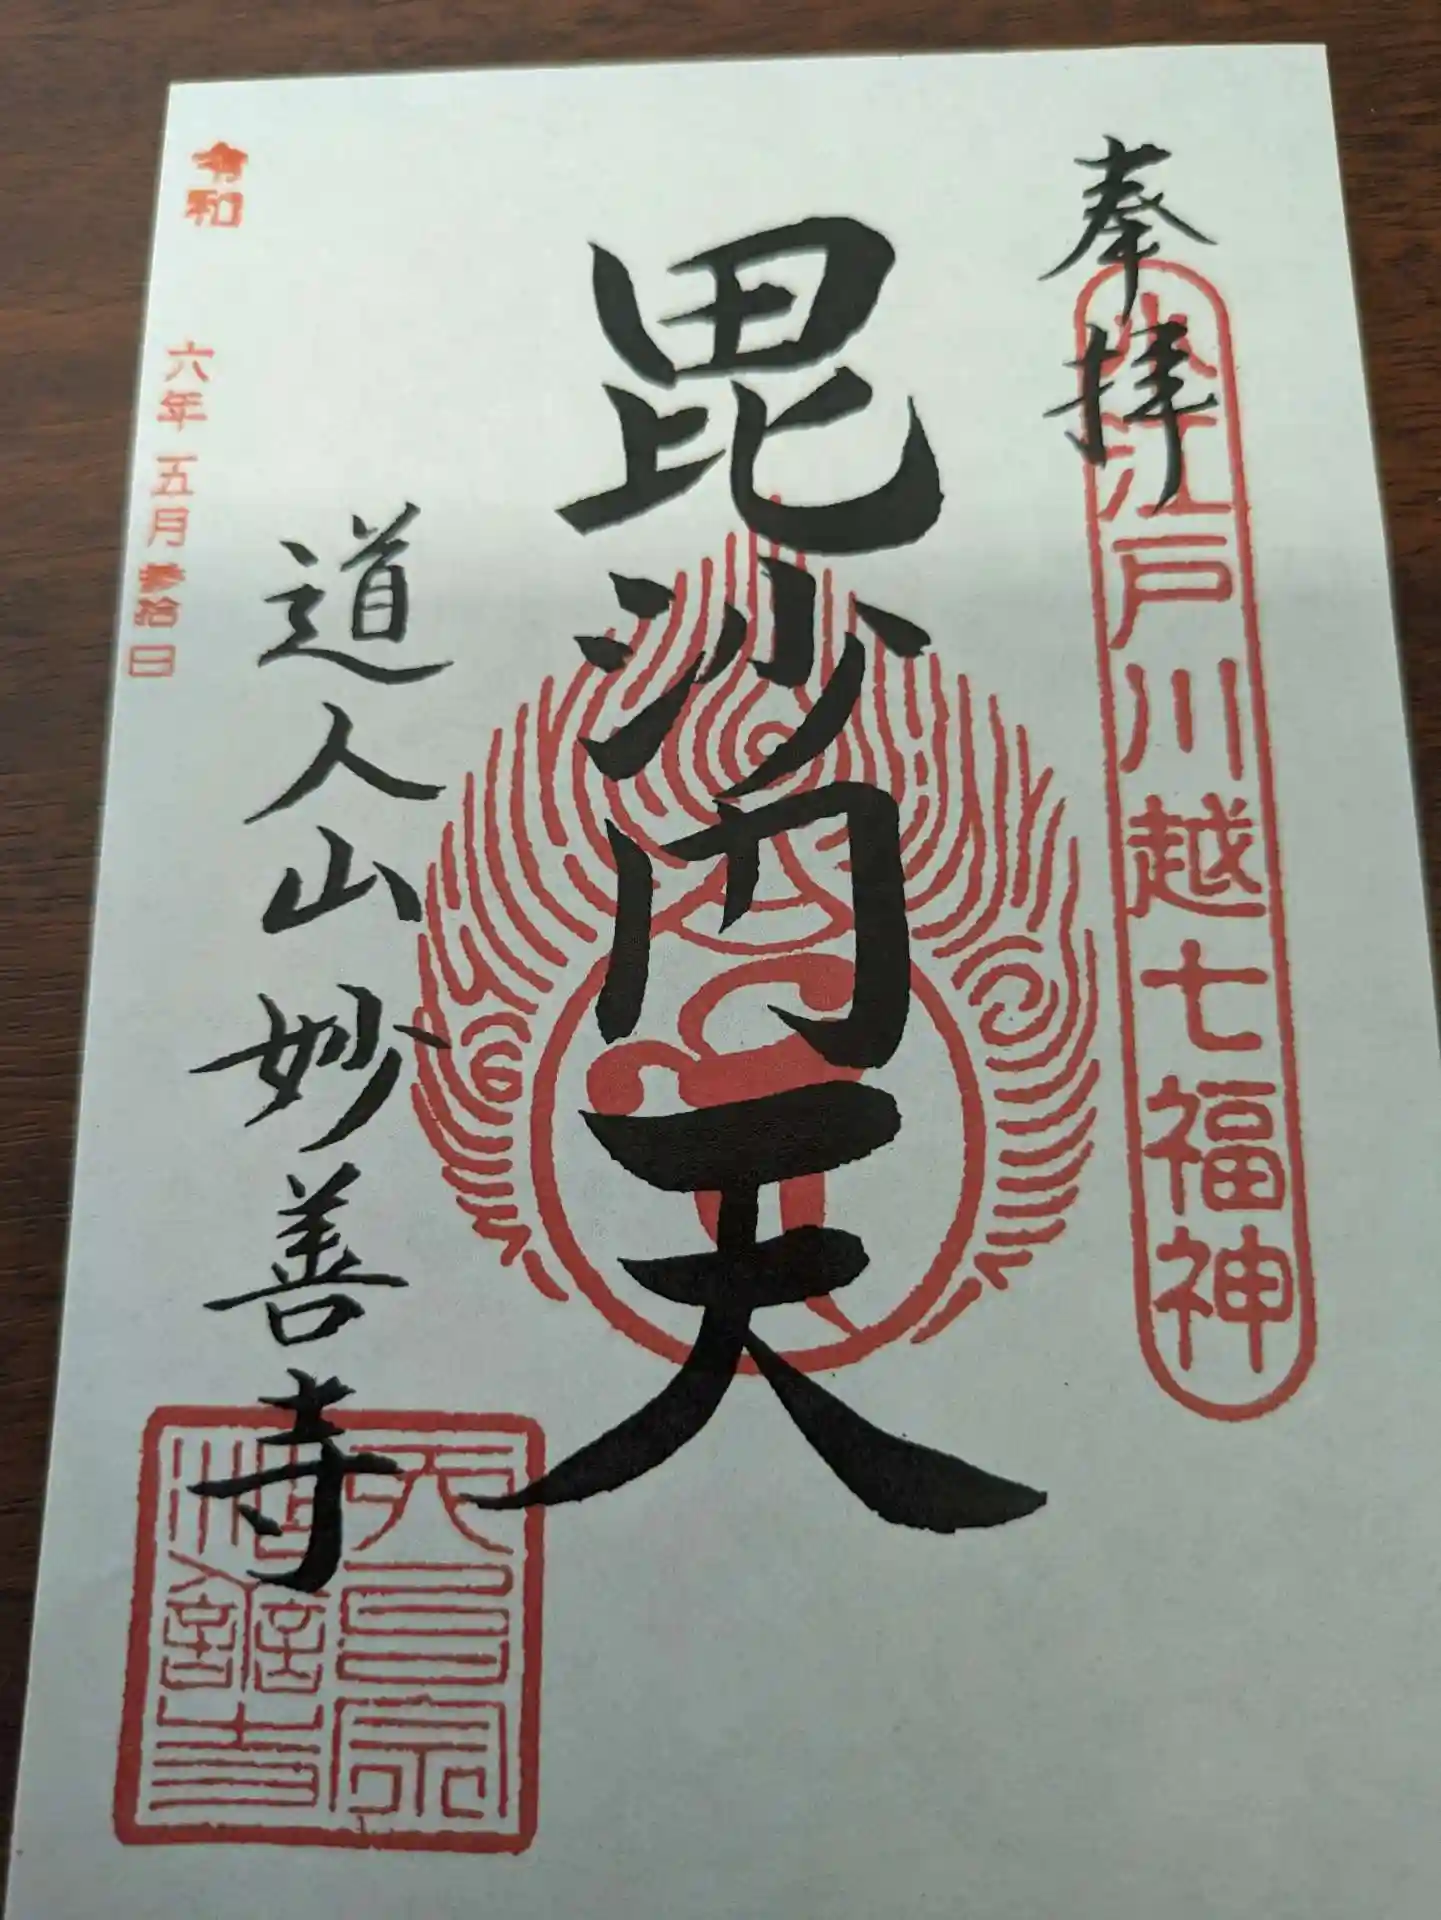 奉拝
小江戸川越七福神
毘沙门天
道人山妙善寺
天台宗
妙善寺
令和六年五月参拾日